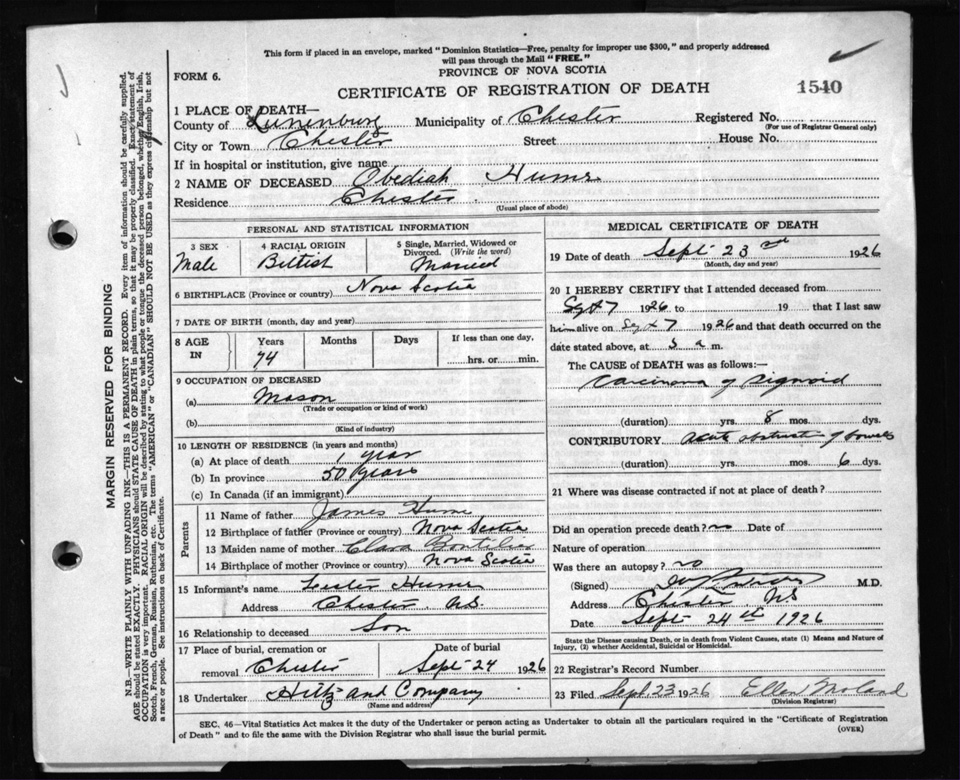 This form if placed in an envelope, marked "Dominion Statistics—Free, penalty for improper use $300," and properly addressed
will pass through the Mail "FREE."
PROVINCE OF NOVA SCOTIA
FORM 6.
CERTIFICATE OF REGISTRATION OF DEATH
1540
1 PLACE OF DEATH—
County of Lunenburg Municipality of Chester Registered No.
(For use of Registrar General only)
City or Town Chester Street House No.
If in hospital or institution, give name
2 NAME OF DECEASED Obediah Hume
Residence Chester
(Usual place of abode)
PERSONAL AND STATISTICAL INFORMATION
3 SEX
Male
4 RACIAL ORIGIN
British
5 Single, Married, Widowed or
Divorced. (Write the word)
Married
6 BIRTHPLACE (Province or country) Nova Scotia
7 DATE OF BIRTH (month, day and year)
8 AGE
IN
Years
74
Months
Days
If less than one day,
hrs. or min.
9 OCCUPATION OF DECEASED
(a) Mason
(Trade or occupation or kind of work)
(b)
(Kind of industry)
10 LENGTH OF RESIDENCE (in years and months)
(a) At place of death 1 year
(b) In province 50 years
(c) In Canada (if an immigrant)
Parents
11 Name of father James Hume
12 Birthplace of father (Province or country) Nova Scotia
13 Maiden name of mother Clara
14 Birthplace of mother (Province or country) Nova Scotia
15 Informant's name Lester Hume
Address Chester N.S.
16 Relationship to deceased Son
17 Place of burial, cremation or
removal Chester
Date of burial
Sept 24 1926
18 Undertaker Hiltz and Company
(Name and address)
MEDICAL CERTIFICATE OF DEATH
19 Date of death Sept 23rd 1926
(Month, day and year)
20 I HEREBY CERTIFY that I attended deceased from
Sept 7 1926 to 19 that I last saw
him alive on Sept 7 1926 and that death occurred on
the date stated above, at 3 a m.
The CAUSE of DEATH was as follows:—
Carcinoma of Sigmoid
(duration) yrs. 8 mos. dys.
CONTRIBUTORY acute obstruction of bowels
(duration) yrs. mos. 6 dys.
21 Where was disease contracted if not at place of death?
Did an operation precede death? no Date of
Nature of operation
Was there an autopsy? no
(Signed) M.D.
Address Chester NS
Date Sept 24th 1926
State the Disease causing Death, or in death from Violent Causes, state (1) Means and Nature of
Injury, (2) whether Accidental, Suicidal or Homicidal.
22 Registrar's Record Number
23 Filed Sept. 23 1926 Ellen
(Division Registrar)
SEC. 46—Vital Statistics Act makes it the duty of the Undertaker or person acting as Undertaker to obtain all the particulars required in the "Certificate of Registration
of Death" and to file the same with the Division Registrar who shall issue the burial permit.
(OVER)
MARGIN RESERVED FOR BINDING
N.B.—WRITE PLAINLY WITH UNFADING INK—THIS IS A PERMANENT RECORD. Every item of information should be carefully supplied.
AGE should be stated EXACTLY. PHYSICIANS should STATE CAUSE OF DEATH in plain terms, so that it may be properly classified. Exact statement of
OCCUPATION is very important. RACIAL ORIGIN will be described by stating to what people or tongue the deceased person belonged, whether English, Irish,
Scotch, French, German, Russian, Ruthenian, etc. The terms "AMERICAN" or "CANADIAN" SHOULD NOT BE USED as they express citizenship but not
a race or people. See instructions on back of Certificate.